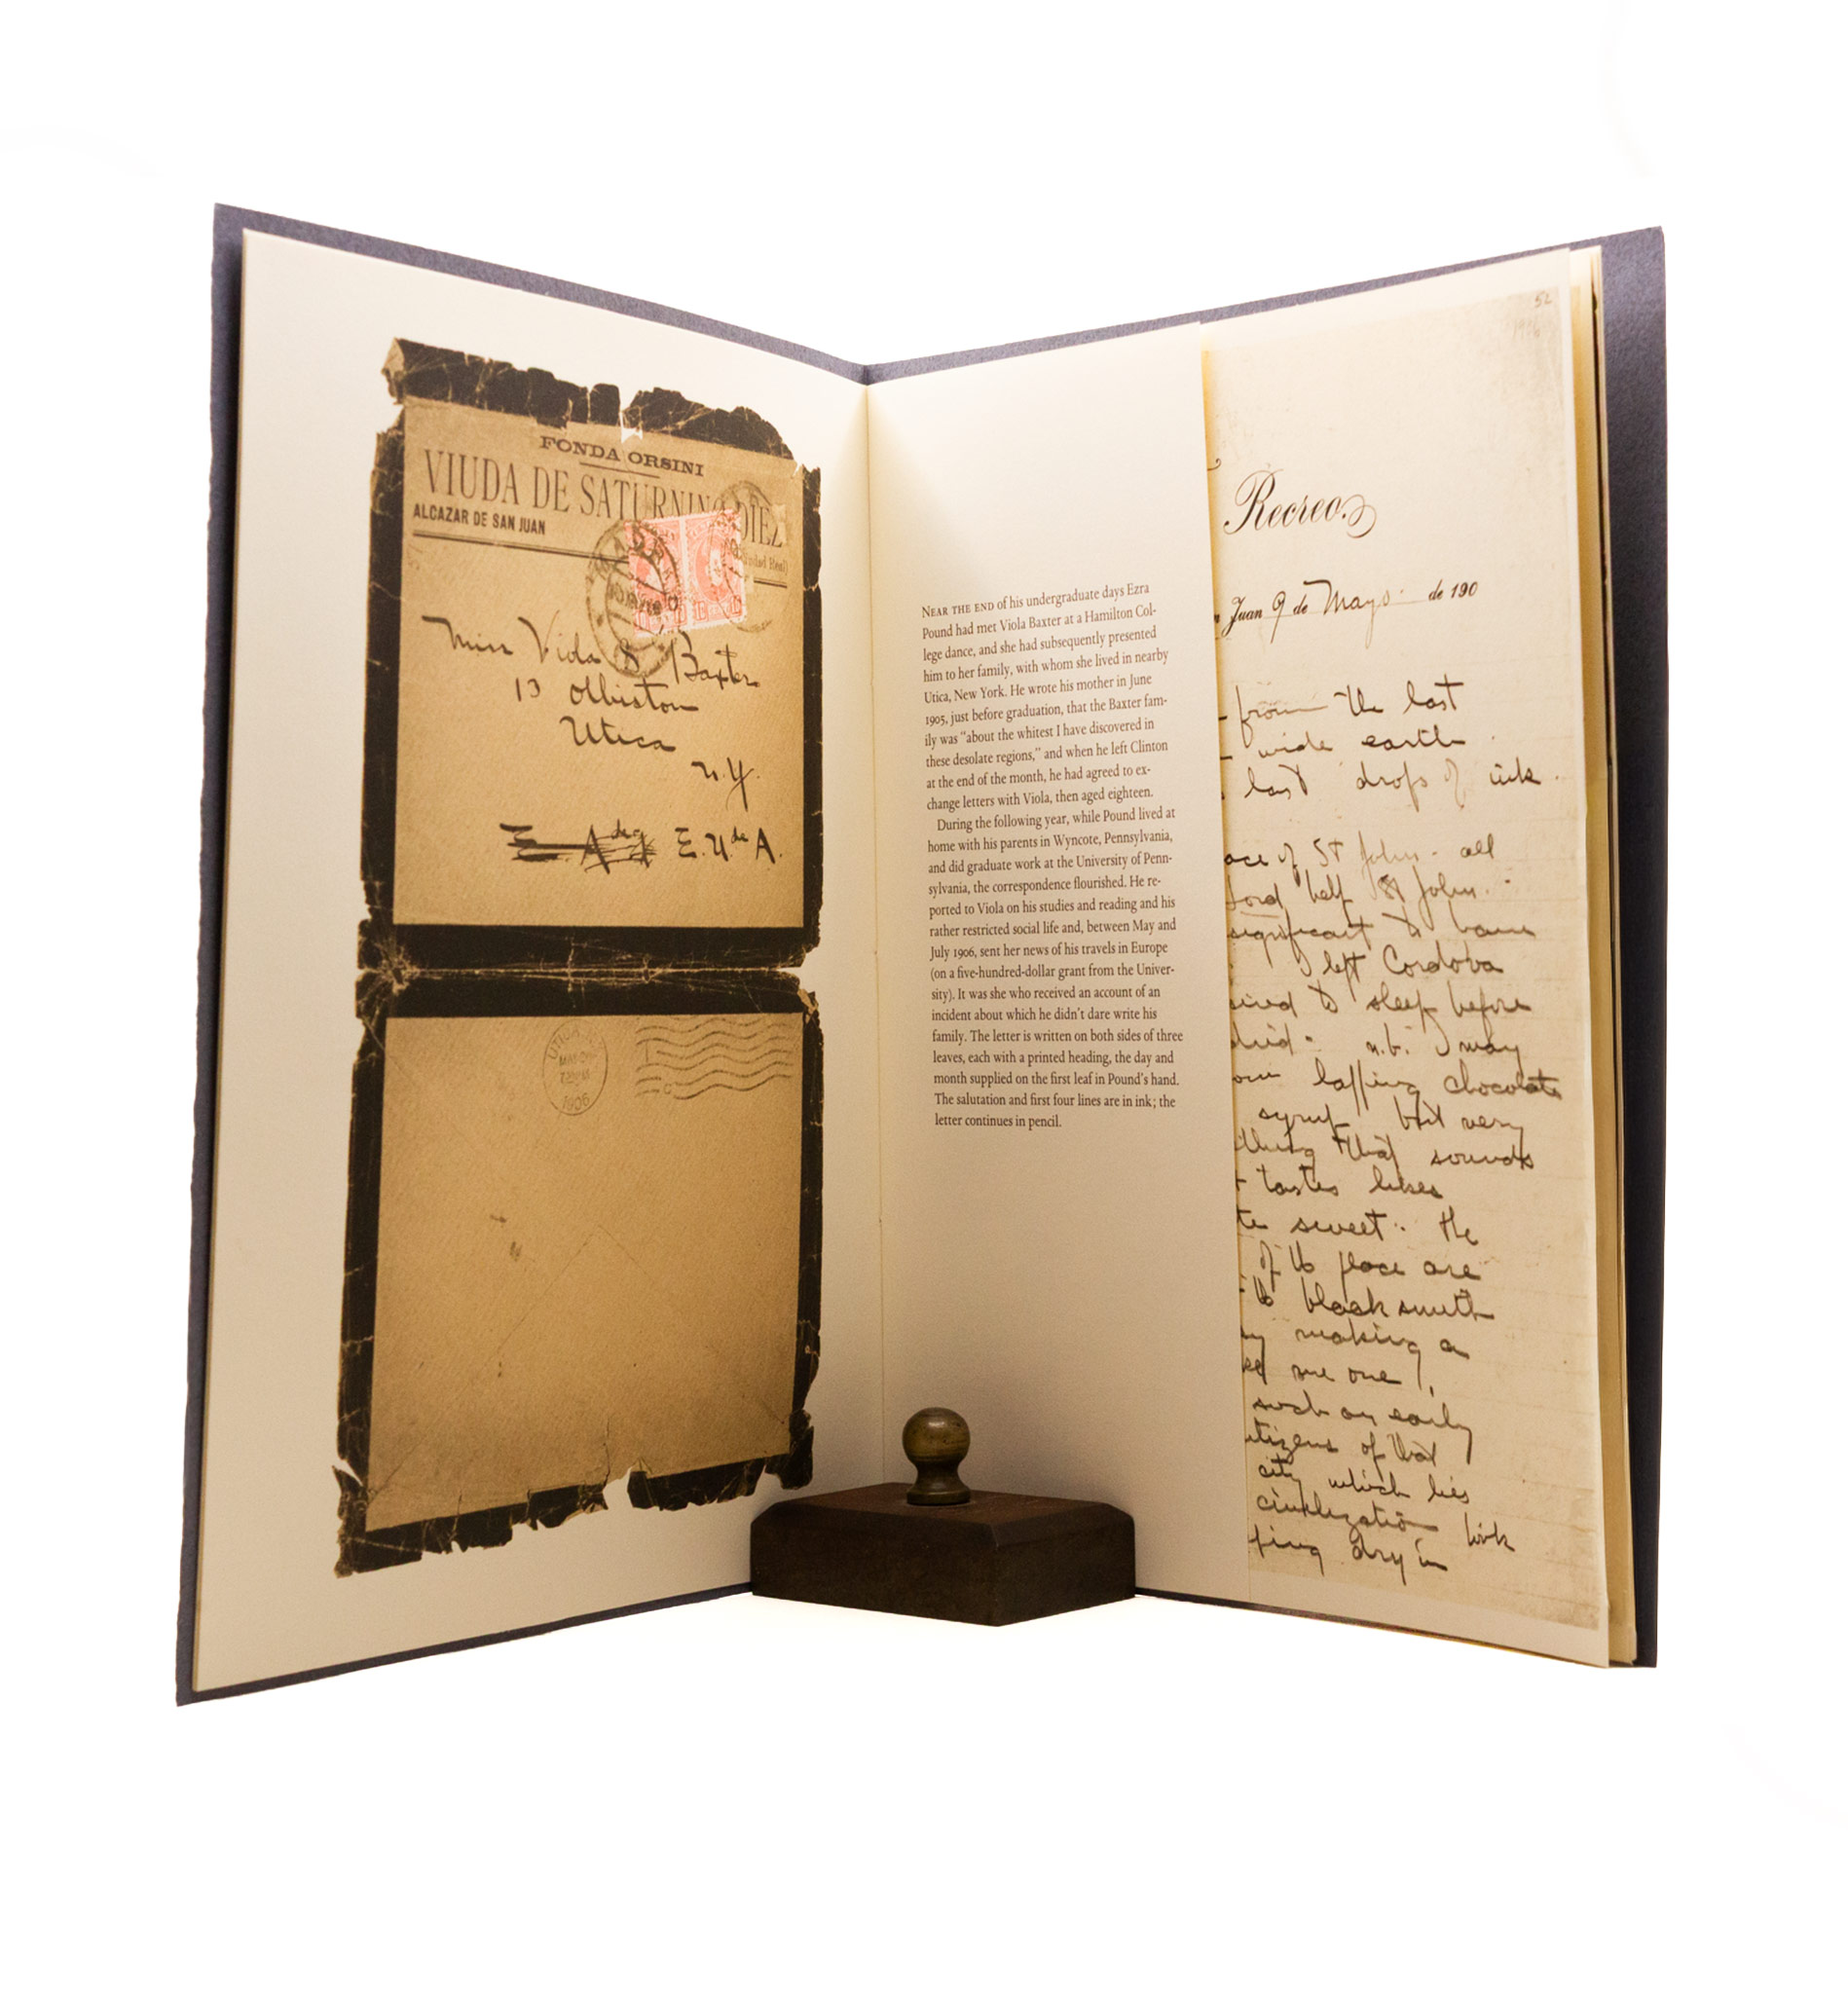 FONDA ORSINI
VIUDA DE SATURNINO DÍEZ
ALCAZAR DE SAN JUAN
Miss Viola S Baxter
13 Olbiston
Utica
N.Y.
E.U. de A.
UTICA, N.Y.
1906
NEAR THE END of his undergraduate days Ezra
Pound had met Viola Baxter at a Hamilton Col-
lege dance, and she had subsequently presented
him to her family, with whom she lived in nearby
Utica, New York. He wrote his mother in June
1905, just before graduation, that the Baxter fam-
ily was "about the whitest I have discovered in
these desolate regions," and when he left Clinton
at the end of the month, he had agreed to ex-
change letters with Viola, then aged eighteen.
During the following year, while Pound lived at
home with his parents in Wyncote, Pennsylvania,
and did graduate work at the University of Penn-
sylvania, the correspondence flourished. He re-
ported to Viola on his studies and reading and his
rather restricted social life and, between May and
July 1906, sent her news of his travels in Europe
(on a five-hundred-dollar grant from the Univer-
sity). It was she who received an account of an
incident about which he didn't dare write his
family. The letter is written on both sides of three
leaves, each with a printed heading, the day and
month supplied on the first leaf in Pound's hand.
The salutation and first four lines are in ink; the
letter continues in pencil.
52
Recreo.
Juan 9 de Mayo de 190
from the last
wide earth
last drops of ink.
of St John - all
Lord help St John.
significant to have
I left Cordova
to sleep before
n.b. I may
lapping chocolate
syrup but very
thing that sounds
tastes likes
sweet. The
of the place are
blacksmith
making a
me one!
such an early
of that
city which lies
civilization link
dry in